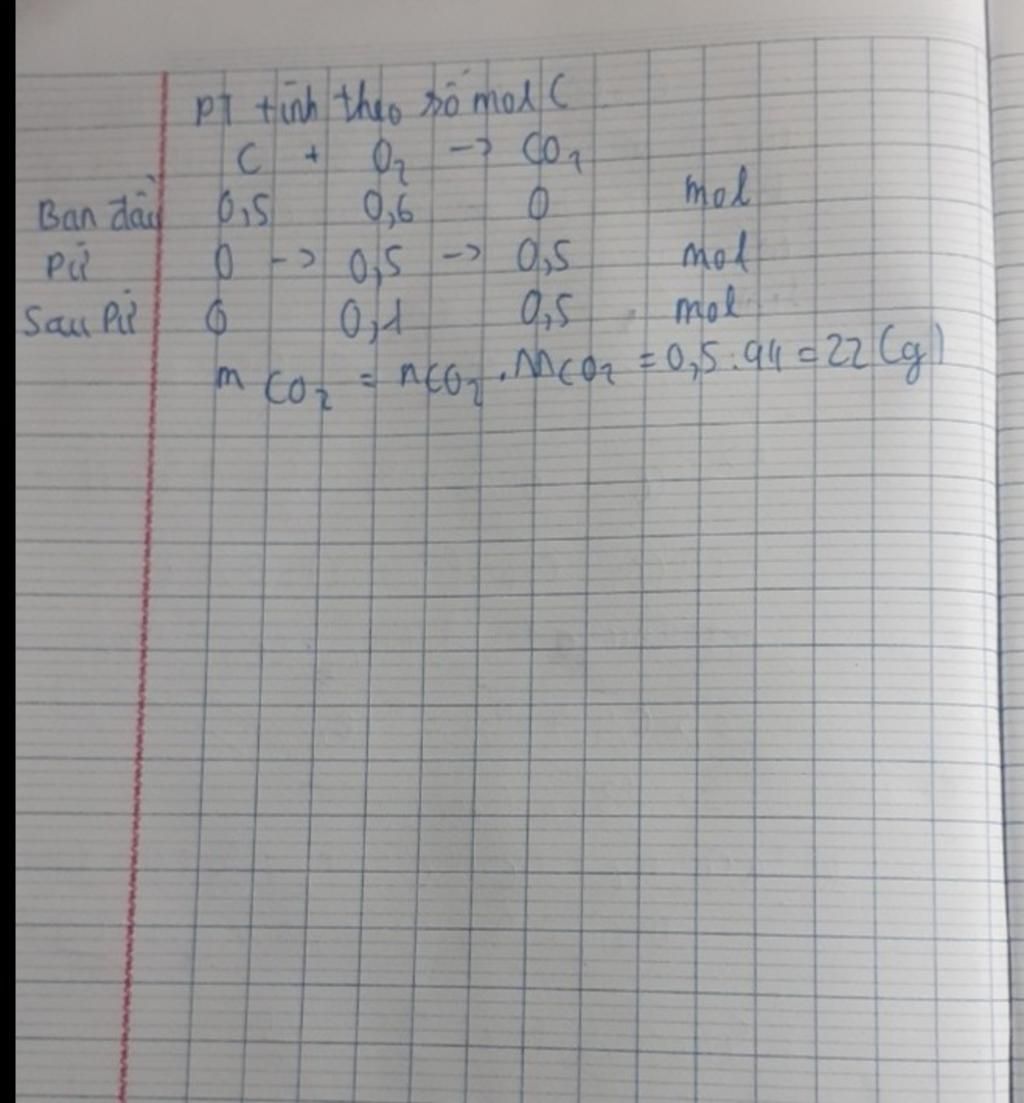 PT tính theo số mol C
C + O₂ -> CO₂
Ban đầu 0,5 0,6 0 mol
PƯ 0 -> 0,5 -> 0,5 mol
Sau PƯ 0 0,1 0,5 mol
m CO₂ = nCO₂ . MCO₂ = 0,5 . 44 = 22 (g)